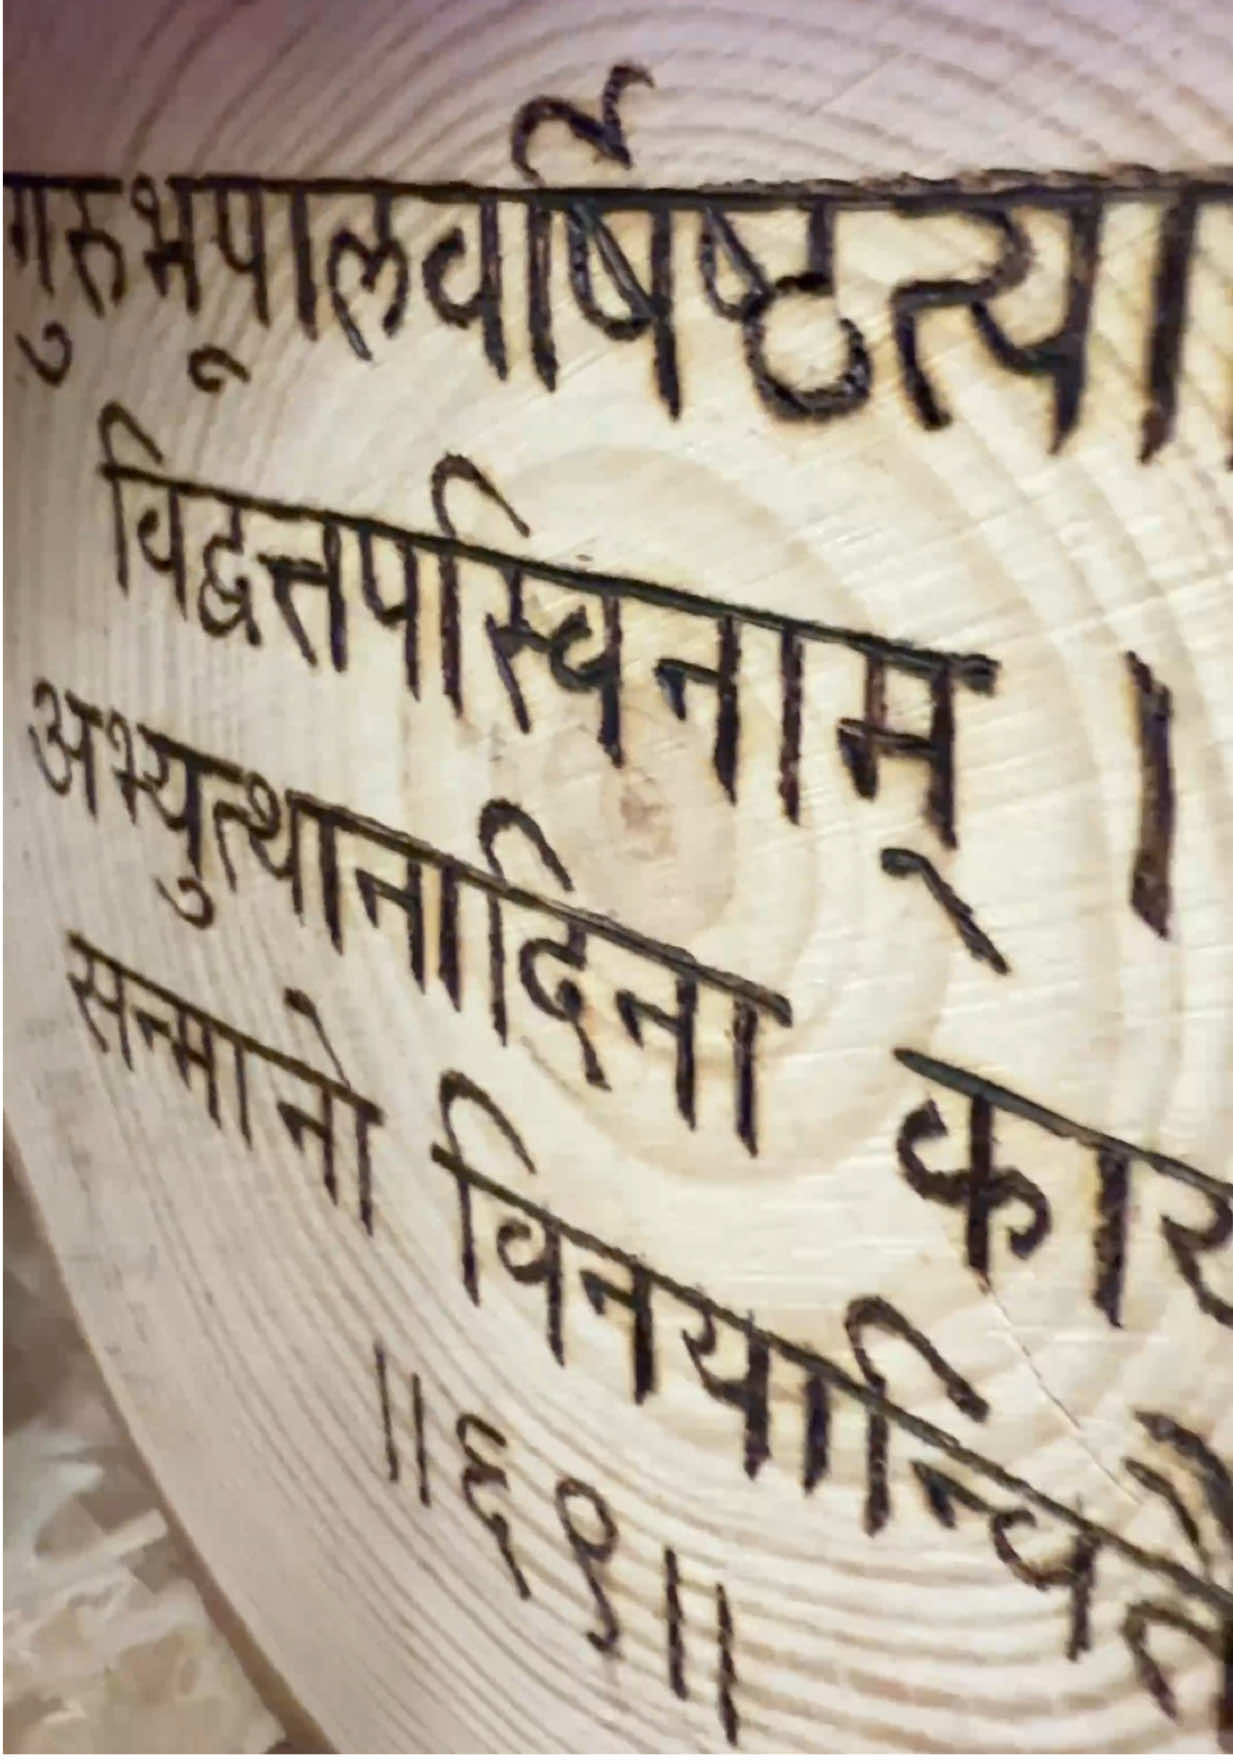 गुरुभूपालवर्षिष्ठत्या
विद्वत्तपस्विनाम् ।
अभ्युत्थानादिना कार
सन्मानो विनयान्वितै
॥६९॥